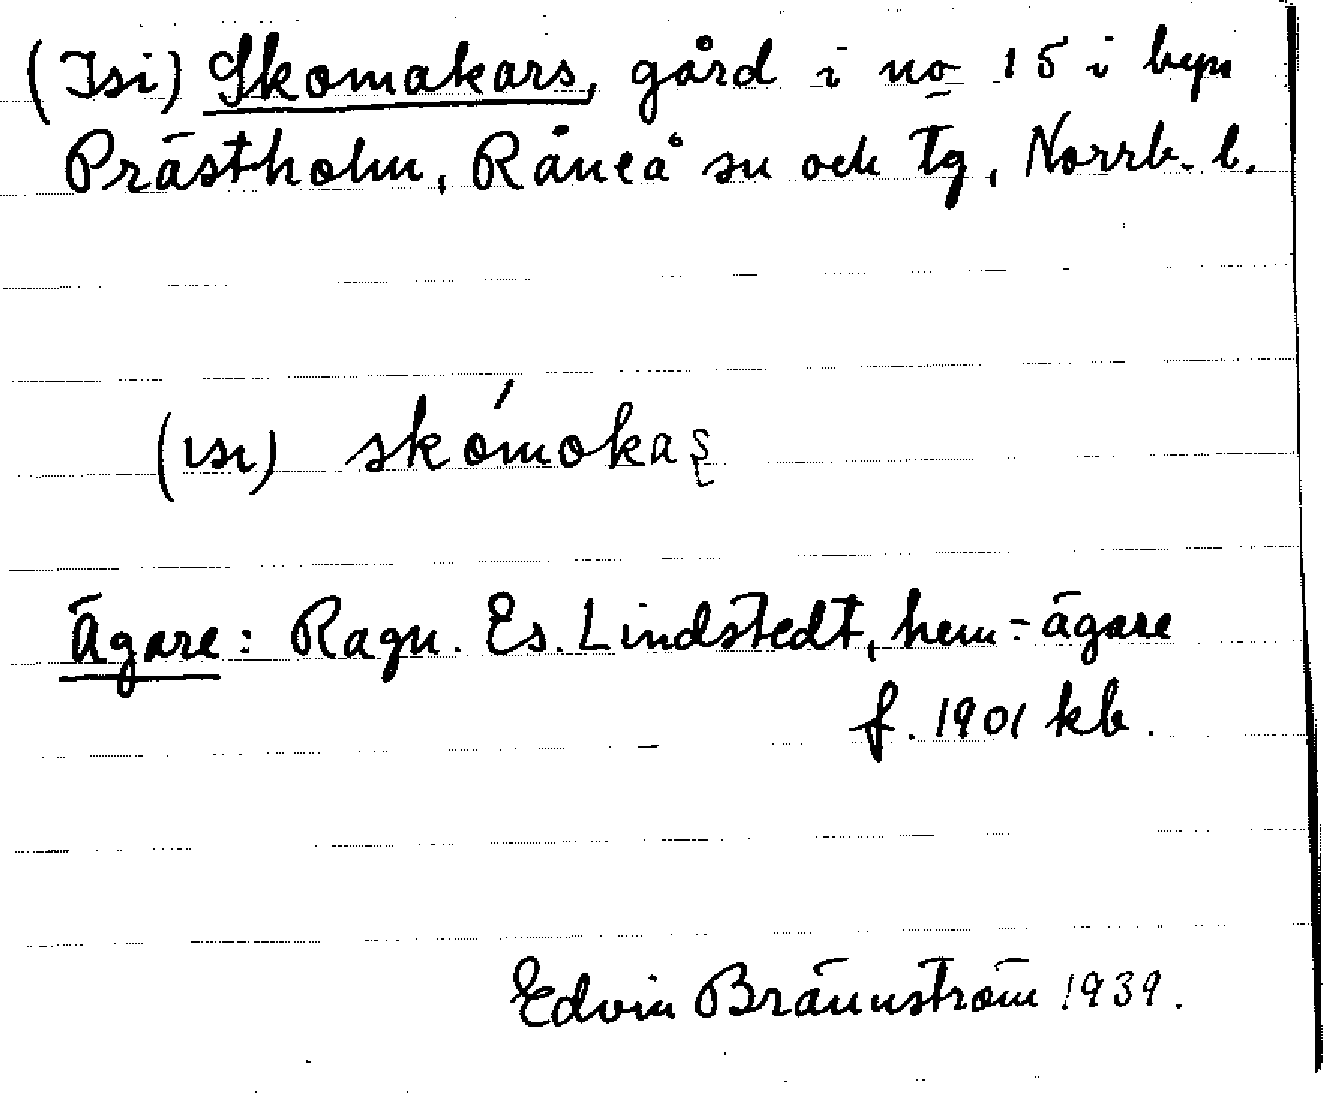 (Isi) Skomakars, gård i no 15 i byn
Prästholm, Råneå sn och tg, Norrb. l.
(ısı) skómokaʂ
Ägare: Ragn. Es. Lindstedt, hem-ägare
f. 1901 kb.
Edvin Brännström 1939.